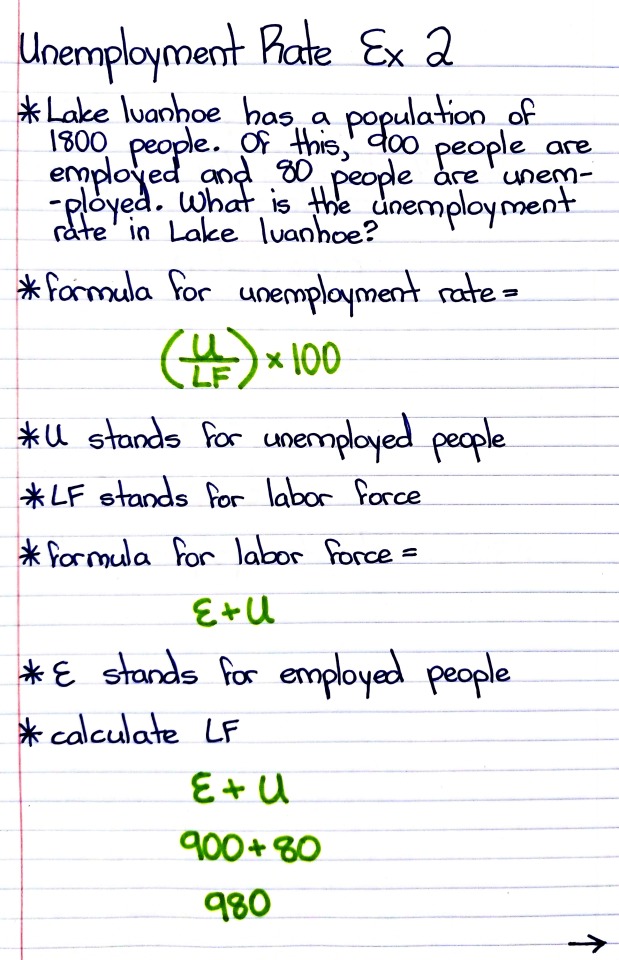 Unemployment Rate Ex 2
* Lake Ivanhoe has a population of
1800 people. Of this, 900 people are
employed and 80 people are unem-
-ployed. What is the unemployment
rate in Lake Ivanhoe?
* formula for unemployment rate =
(U/LF) × 100
* U stands for unemployed people
* LF stands for labor force
* formula for labor force =
E + U
* E stands for employed people
* calculate LF
E + U
900 + 80
980
→